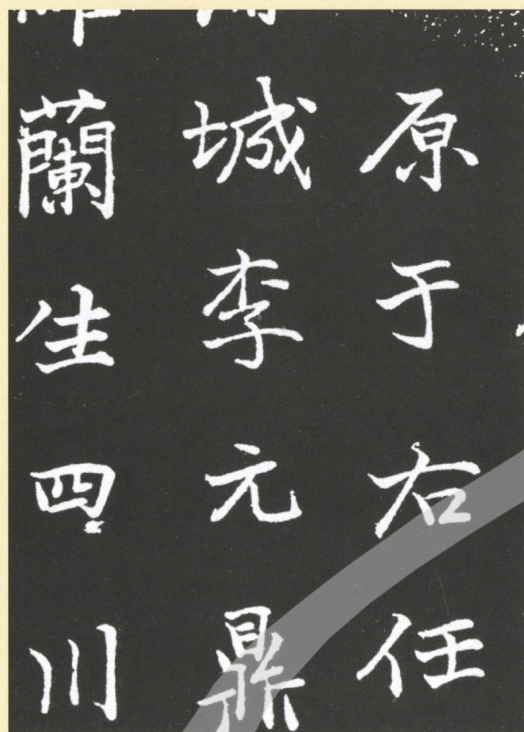 原于右任
城李元鼎
蘭生四川